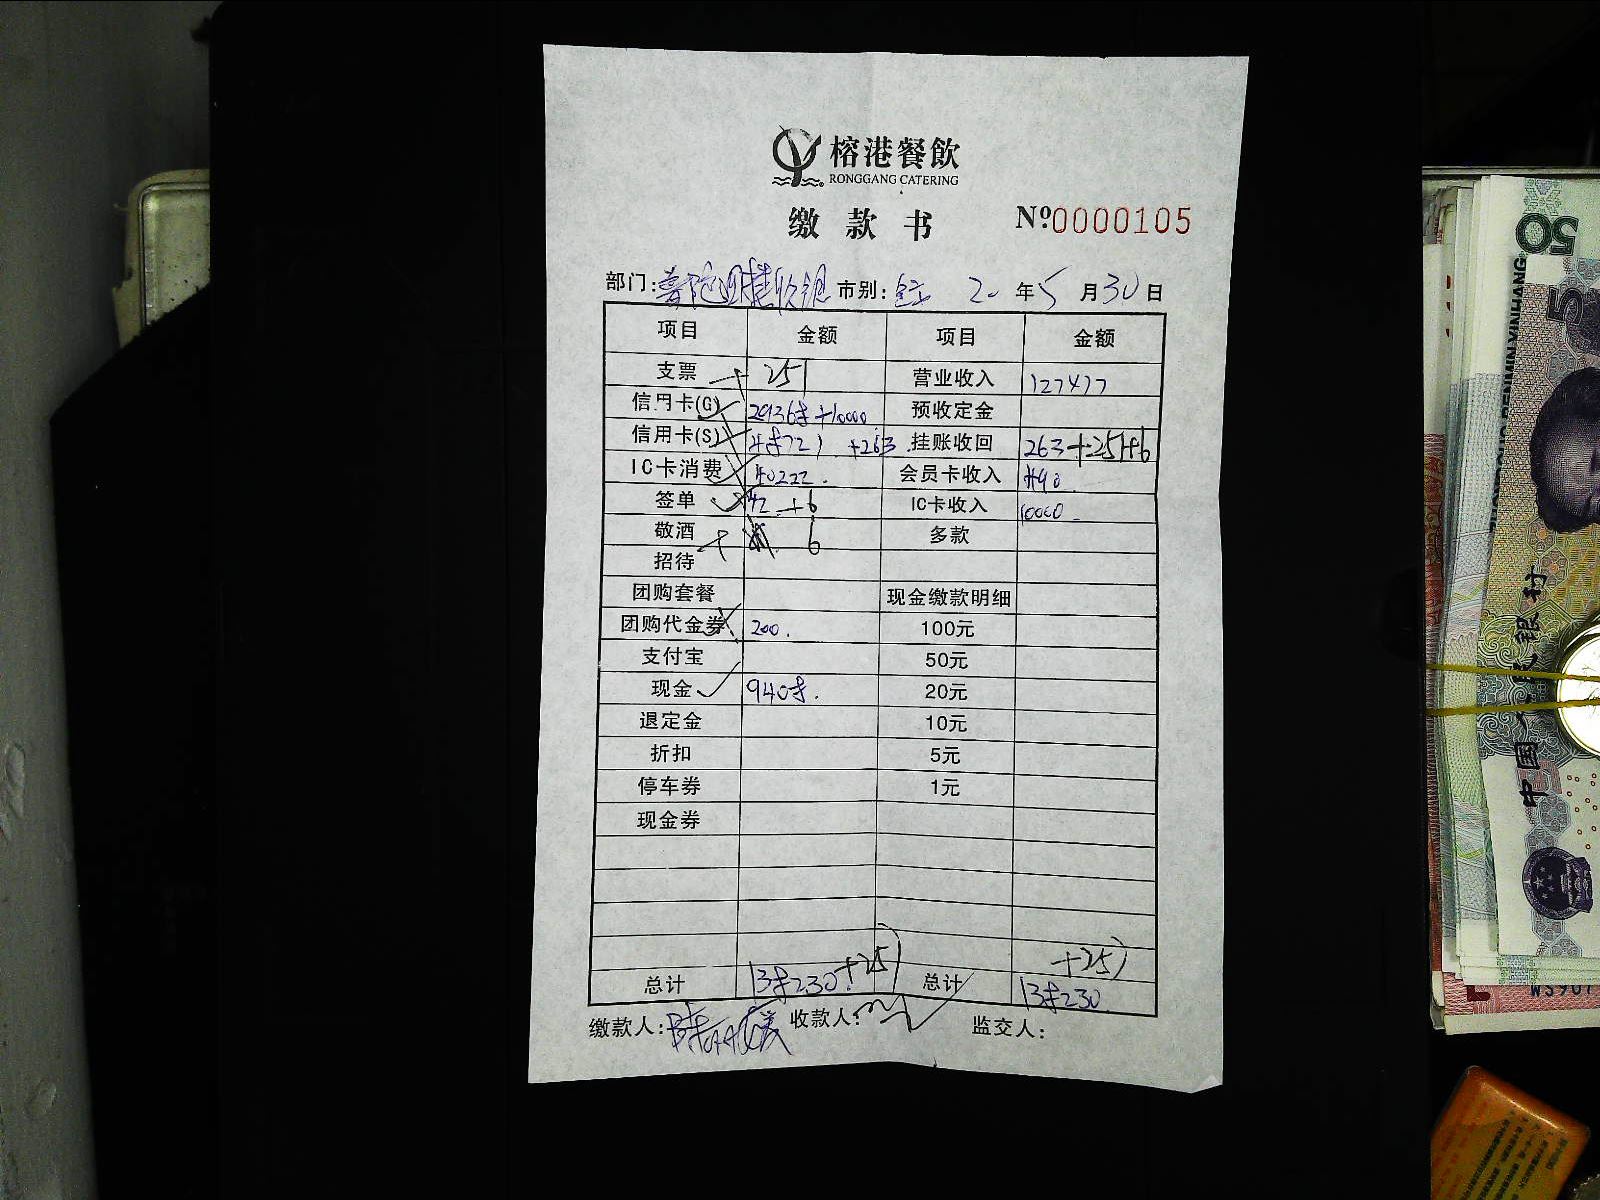 榕港餐飲
RONGGANG CATERING
缴款书 Nº0000105
部门: 市别: 20年5月30日
项目 金额 项目 金额
支票 251 营业收入 127477
信用卡(G) +10000 预收定金
信用卡(S) +263 挂账收回 263+251+6
IC卡消费 40222. 会员卡收入
签单 42 +6 IC卡收入 10000
敬酒 6 多款
招待
团购套餐 现金缴款明细
团购代金券 200. 100元
支付宝 50元
现金 20元
退定金 10元
折扣 5元
停车券 1元
现金券
+251 +251
总计 总计
缴款人: 收款人: 监交人:
50
中国人民银行